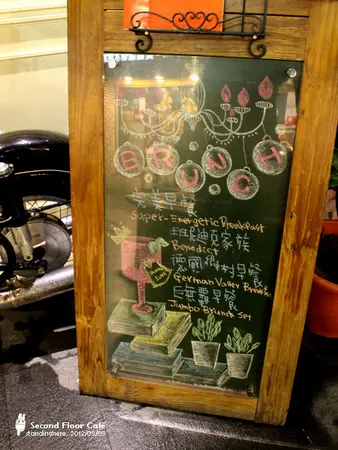 BRUNCH
完美早餐
Super-Energetic Breakfast
班尼迪克家族
Benedict
德國鄉村早餐
German Valley Breakfast
巨無霸早餐
Jumbo Brunch Set
Second Floor Café
standinghere.. 2012/03/03